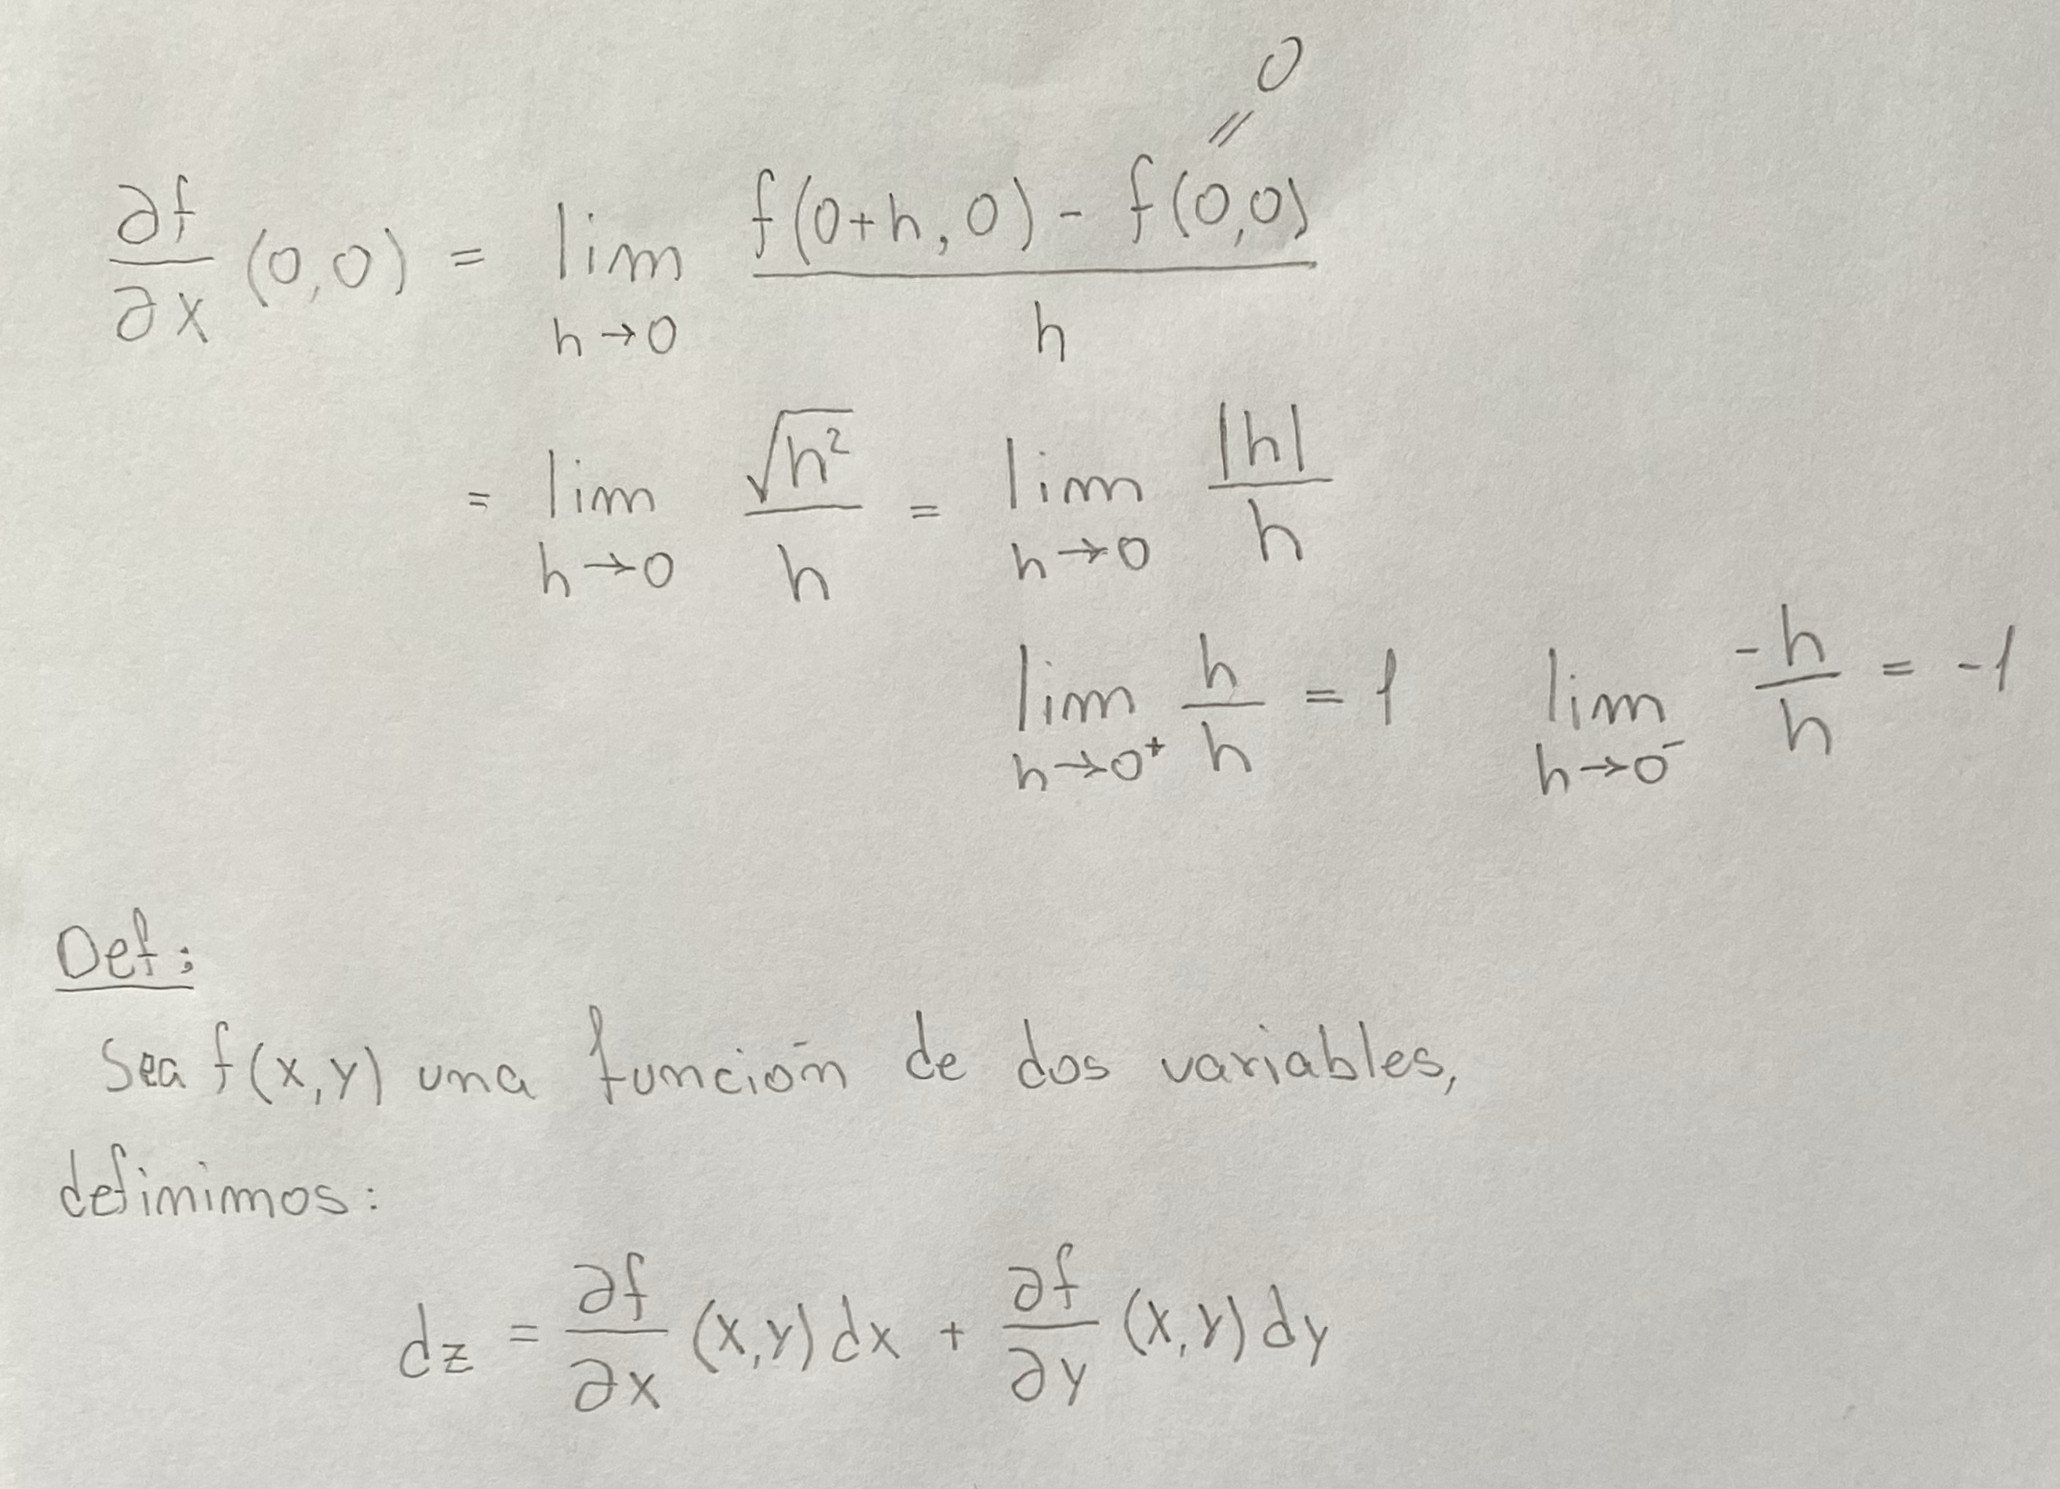 0
//
∂f/∂x (0,0) = lim h→0 (f(0+h,0) - f(0,0))/h
= lim h→0 √h²/h = lim h→0 |h|/h
lim h→0⁺ h/h = 1 lim h→0⁻ -h/h = -1
Def:
Sea f(x,y) una función de dos variables,
definimos:
dz = ∂f/∂x (x,y) dx + ∂f/∂y (x,y) dy